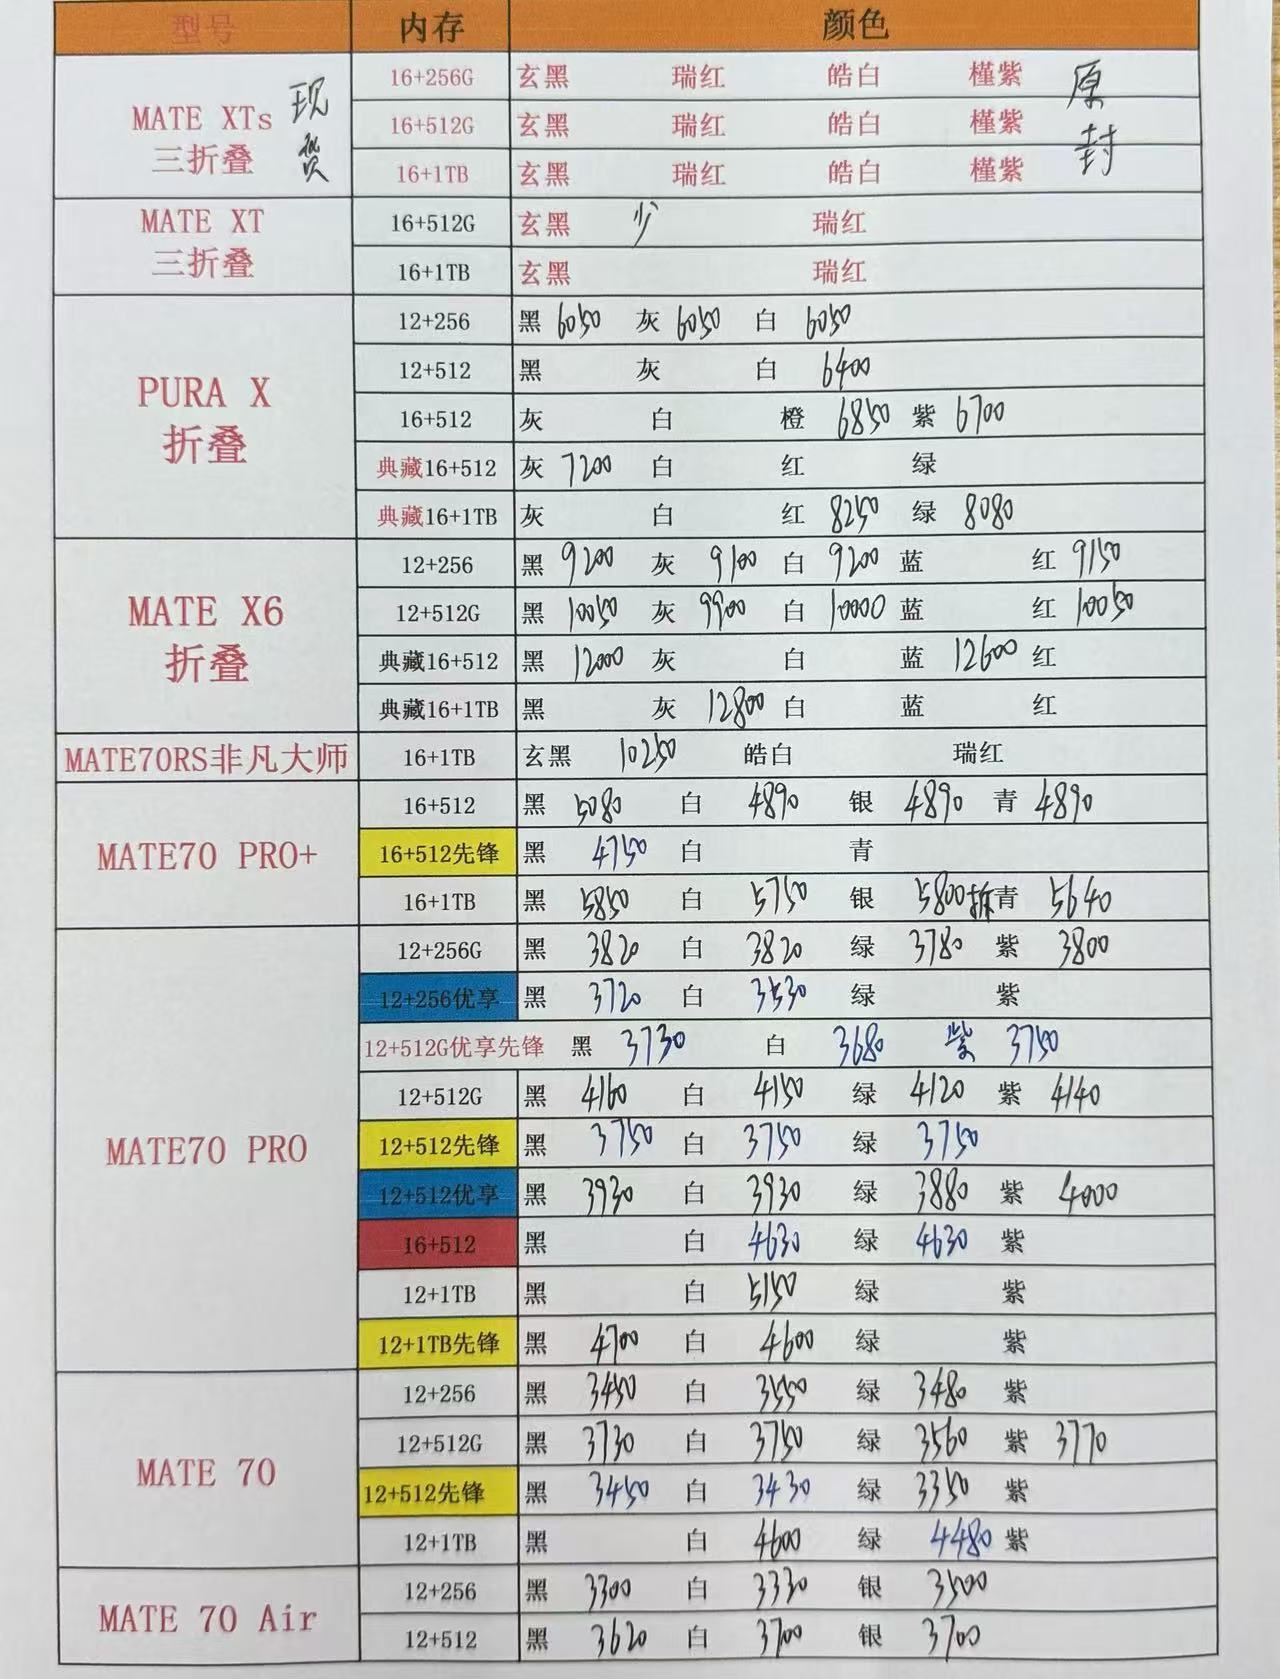 型号 内存 颜色
16+256G 玄黑 瑞红 皓白 槿紫 原
MATE XTs 现 16+512G 玄黑 瑞红 皓白 槿紫 封
三折叠 货 16+1TB 玄黑 瑞红 皓白 槿紫
MATE XT 16+512G 玄黑 少 瑞红
三折叠 16+1TB 玄黑 瑞红
12+256 黑 6050 灰 6050 白 6050
12+512 黑 灰 白 6400
PURA X 16+512 灰 白 橙 6850 紫 6700
折叠 典藏16+512 灰 7200 白 红 绿
典藏16+1TB 灰 白 红 8250 绿 8080
12+256 黑 9200 灰 9100 白 9200 蓝 红 9150
MATE X6 12+512G 黑 10050 灰 9900 白 10000 蓝 红 10050
折叠 典藏16+512 黑 12000 灰 白 蓝 12600 红
典藏16+1TB 黑 灰 12800 白 蓝 红
MATE70RS非凡大师 16+1TB 玄黑 10250 皓白 瑞红
16+512 黑 5080 白 4890 银 4890 青 4890
MATE70 PRO+ 16+512先锋 黑 4750 白 青
16+1TB 黑 5850 白 5750 银 5800拆 青 5640
12+256G 黑 3820 白 3820 绿 3780 紫 3800
12+256优享 黑 3720 白 3530 绿 紫
12+512G优享先锋 黑 3730 白 3680 紫 3750
12+512G 黑 4160 白 4150 绿 4120 紫 4140
MATE70 PRO 12+512先锋 黑 3750 白 3750 绿 3750
12+512优享 黑 3930 白 3930 绿 3880 紫 4000
16+512 黑 白 4630 绿 4630 紫
12+1TB 黑 白 5150 绿 紫
12+1TB先锋 黑 4700 白 4600 绿 紫
12+256 黑 3450 白 3550 绿 3480 紫
12+512G 黑 3730 白 3750 绿 3560 紫 3770
MATE 70 12+512先锋 黑 3450 白 3430 绿 3350 紫
12+1TB 黑 白 4600 绿 4480 紫
12+256 黑 3300 白 3330 银 3500
MATE 70 Air 12+512 黑 3620 白 3700 银 3700